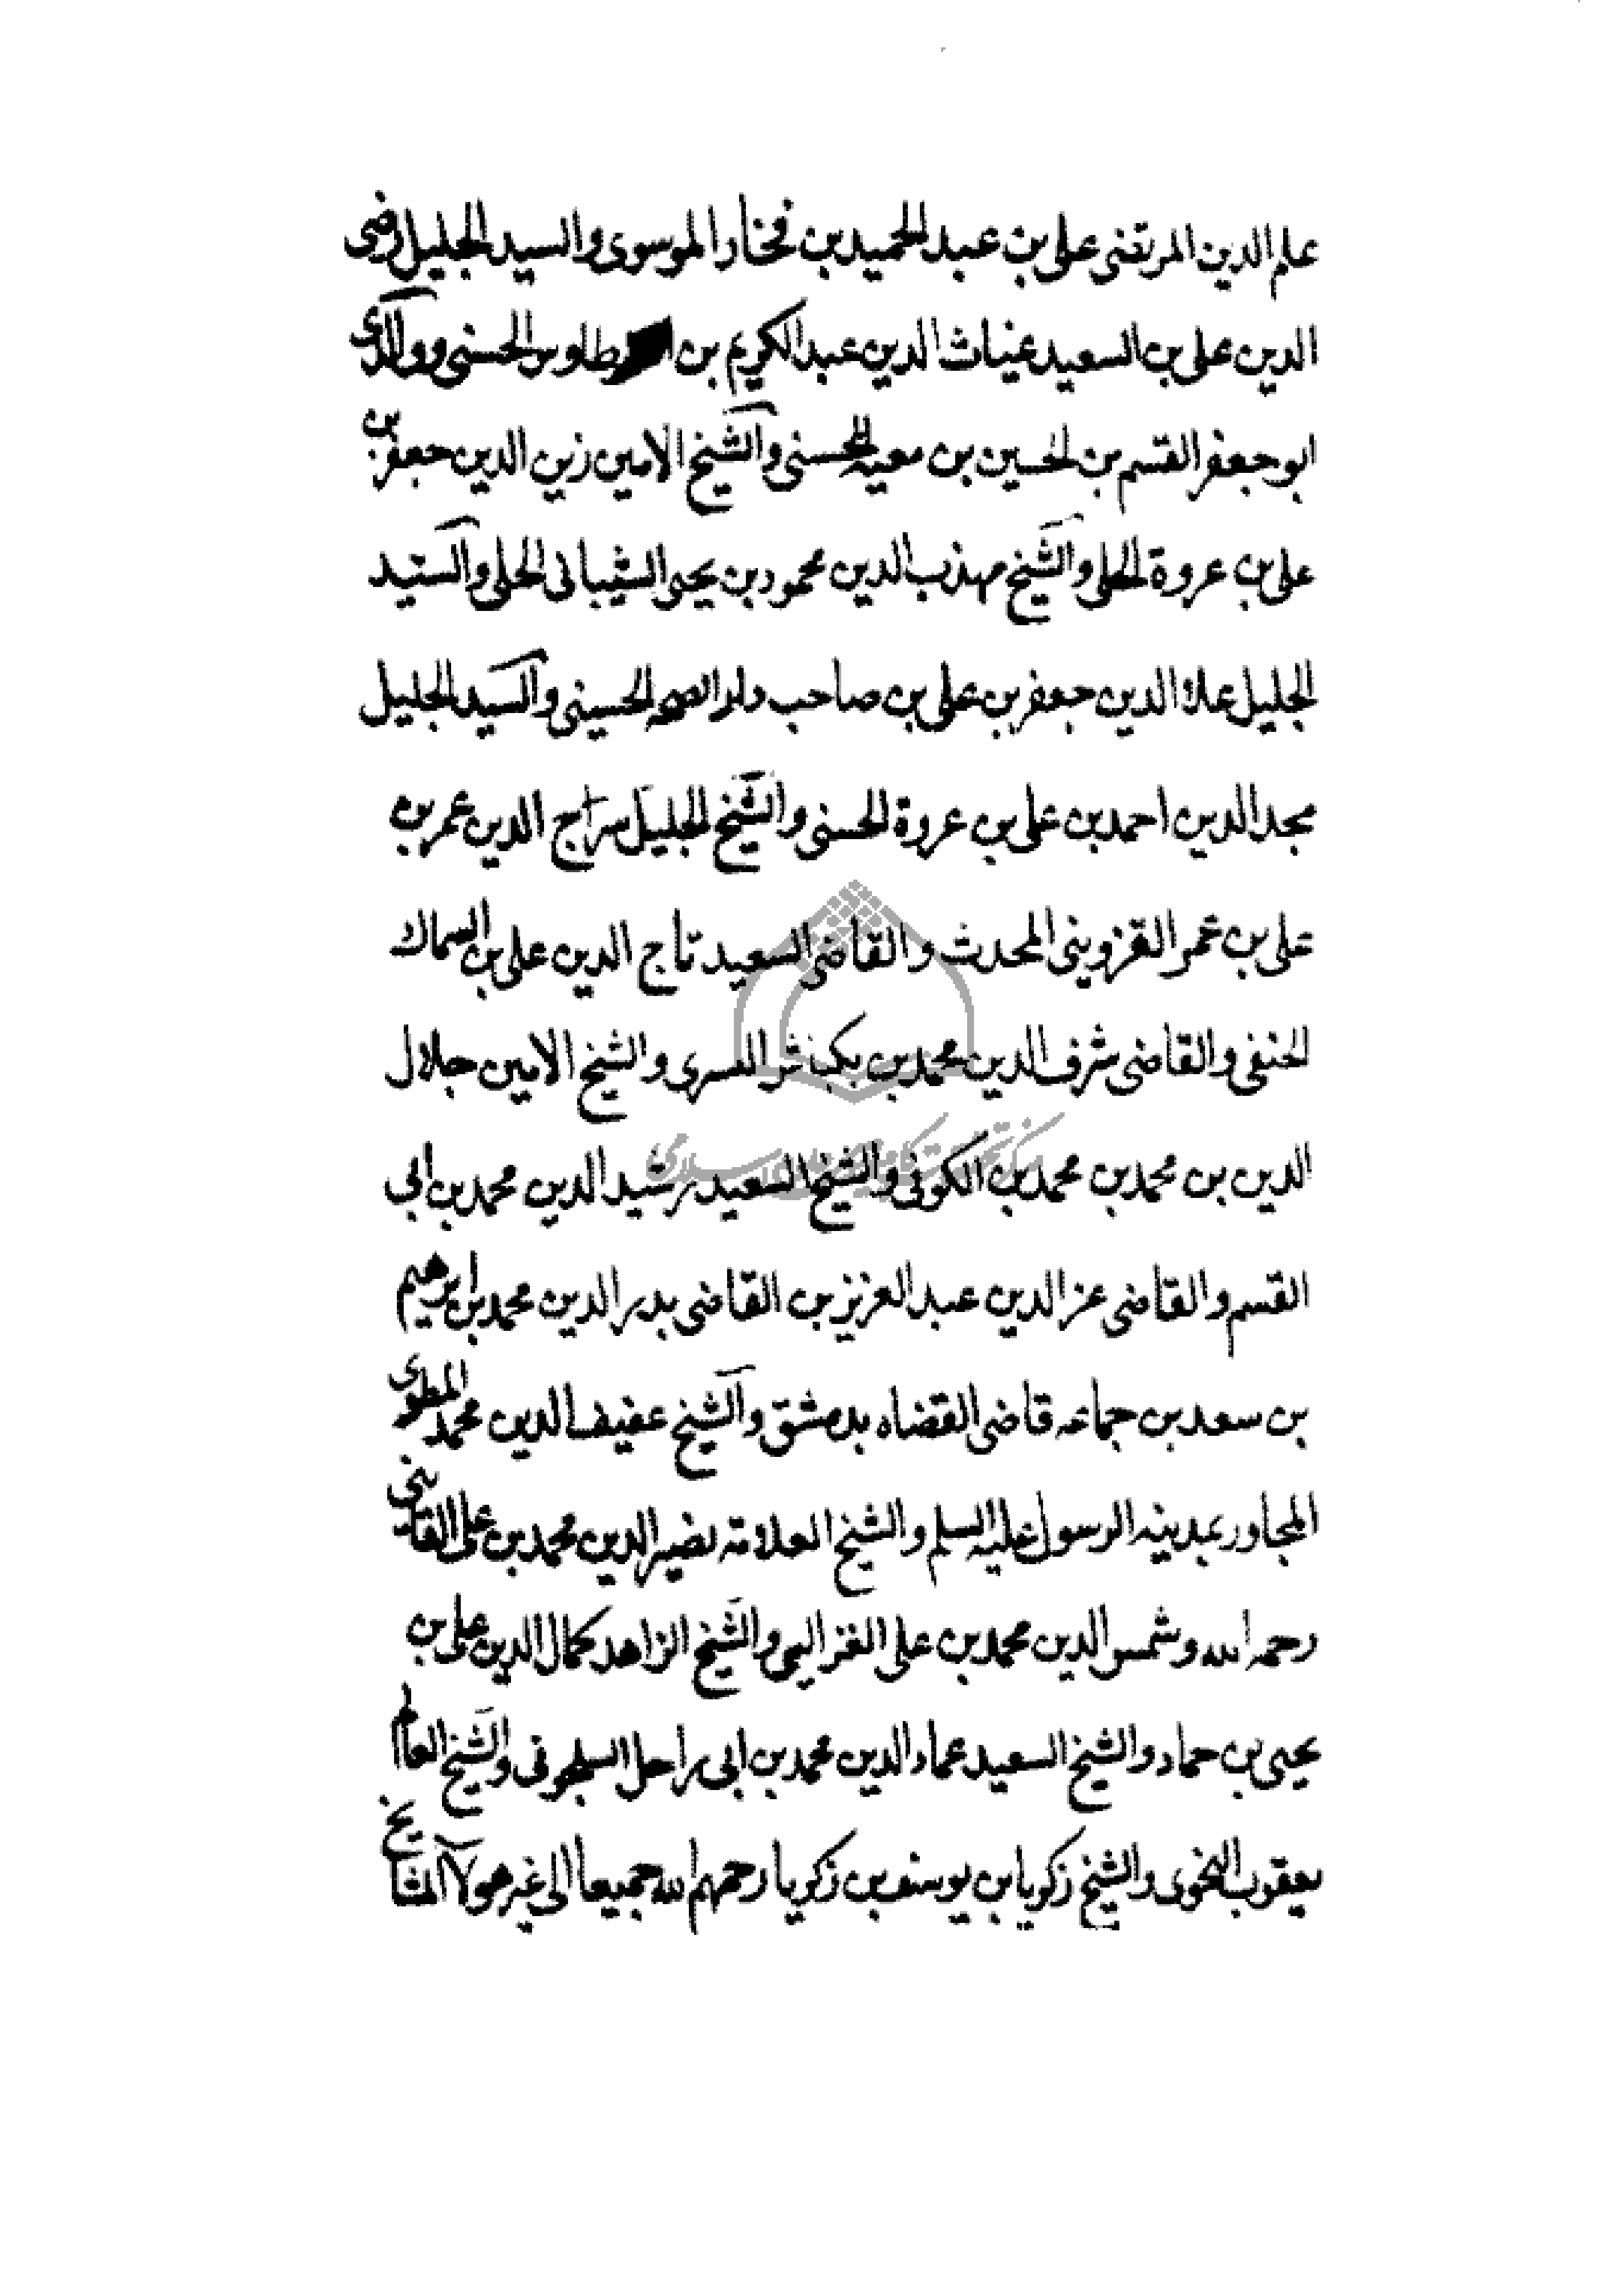 علم الدين المرتضى على بن عبد الحميد بن فخار الموسوى والسيد الجليل رضى
الدين على بن السعيد غياث الدين عبد الكريم بن طاوس الحسنى ووالدى
ابو جعفر القسم بن الحسين بن معيه الحسنى والشيخ الامين زين الدين جعفر بن
على بن عروة الحلى والشيخ مهذب الدين محمود بن يحيى الشيبانى الحلى والسيد
الجليل علاء الدين جعفر بن على بن صاحب دار الصخر الحسينى والسيد الجليل
مجد الدين احمد بن على بن عروة الحسنى والشيخ الجليل سراج الدين عمر بن
على بن عمر القزوينى المحدث والقاضى السعيد تاج الدين على بن السماك
الحنفى والقاضى شرف الدين محمد بن بكتاش التسترى والشيخ الامين جلال
الدين بن محمد بن محمد بن الكوفى والشيخ السعيد رشيد الدين محمد بن ابى
القسم والقاضى عز الدين عبد العزيز بن القاضى بدر الدين محمد بن ابرهيم
بن سعد بن جماعه قاضى القضاه بدمشق والشيخ عفيف الدين محمد المطرى
المجاور بمدينه الرسول عليه السلم والشيخ العلامة نصير الدين محمد بن على القاشى
رحمه الله وشمس الدين محمد بن على الغزالى والشيخ الزاهد كمال الدين على بن
يحيى بن حماد والشيخ السعيد عماد الدين محمد بن ابى راحل السلجوقى والشيخ العالم
يعقوب النحوى والشيخ زكريا بن يوسف بن زكريا رحمهم الله جميعا الى غير هولآ المشايخ